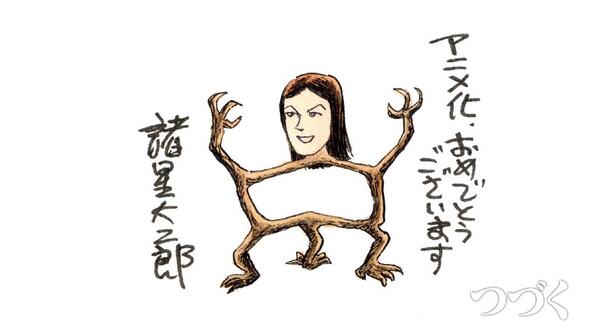 アニメ化、
おめでとう
ございます
諸星大二郎
つづく